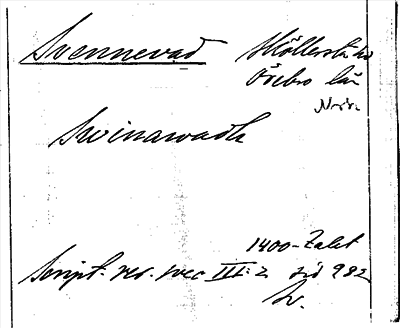 Svennevad Sköllersta hd
Örebro län
Nrk.
Swinawadh
1400-talet
Script. rer. svec III:2 sid 982
Sv.